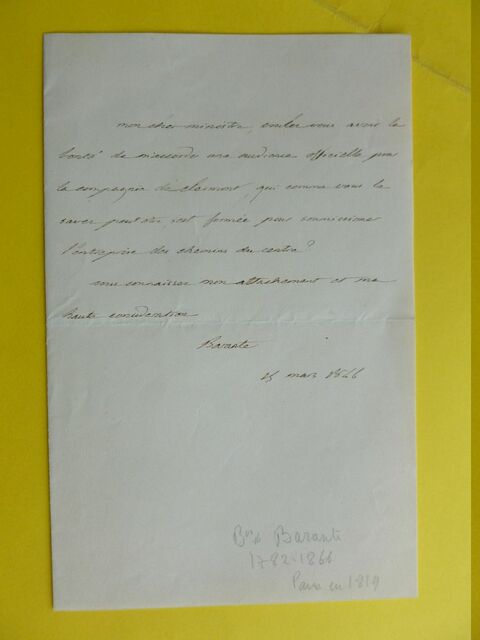 mon cher ministre, voulez vous avoir la
bonté de m'accorder une audience officielle pour
la compagnie de clermont, qui comme vous le
savez peut être s'est formée pour soumissionner
l'entreprise des chemins du centre?
vous connaissez mon attachement et ma
haute consideration
Barante
25 mars
Bon de Barante
1782-1866
Pair en 1819